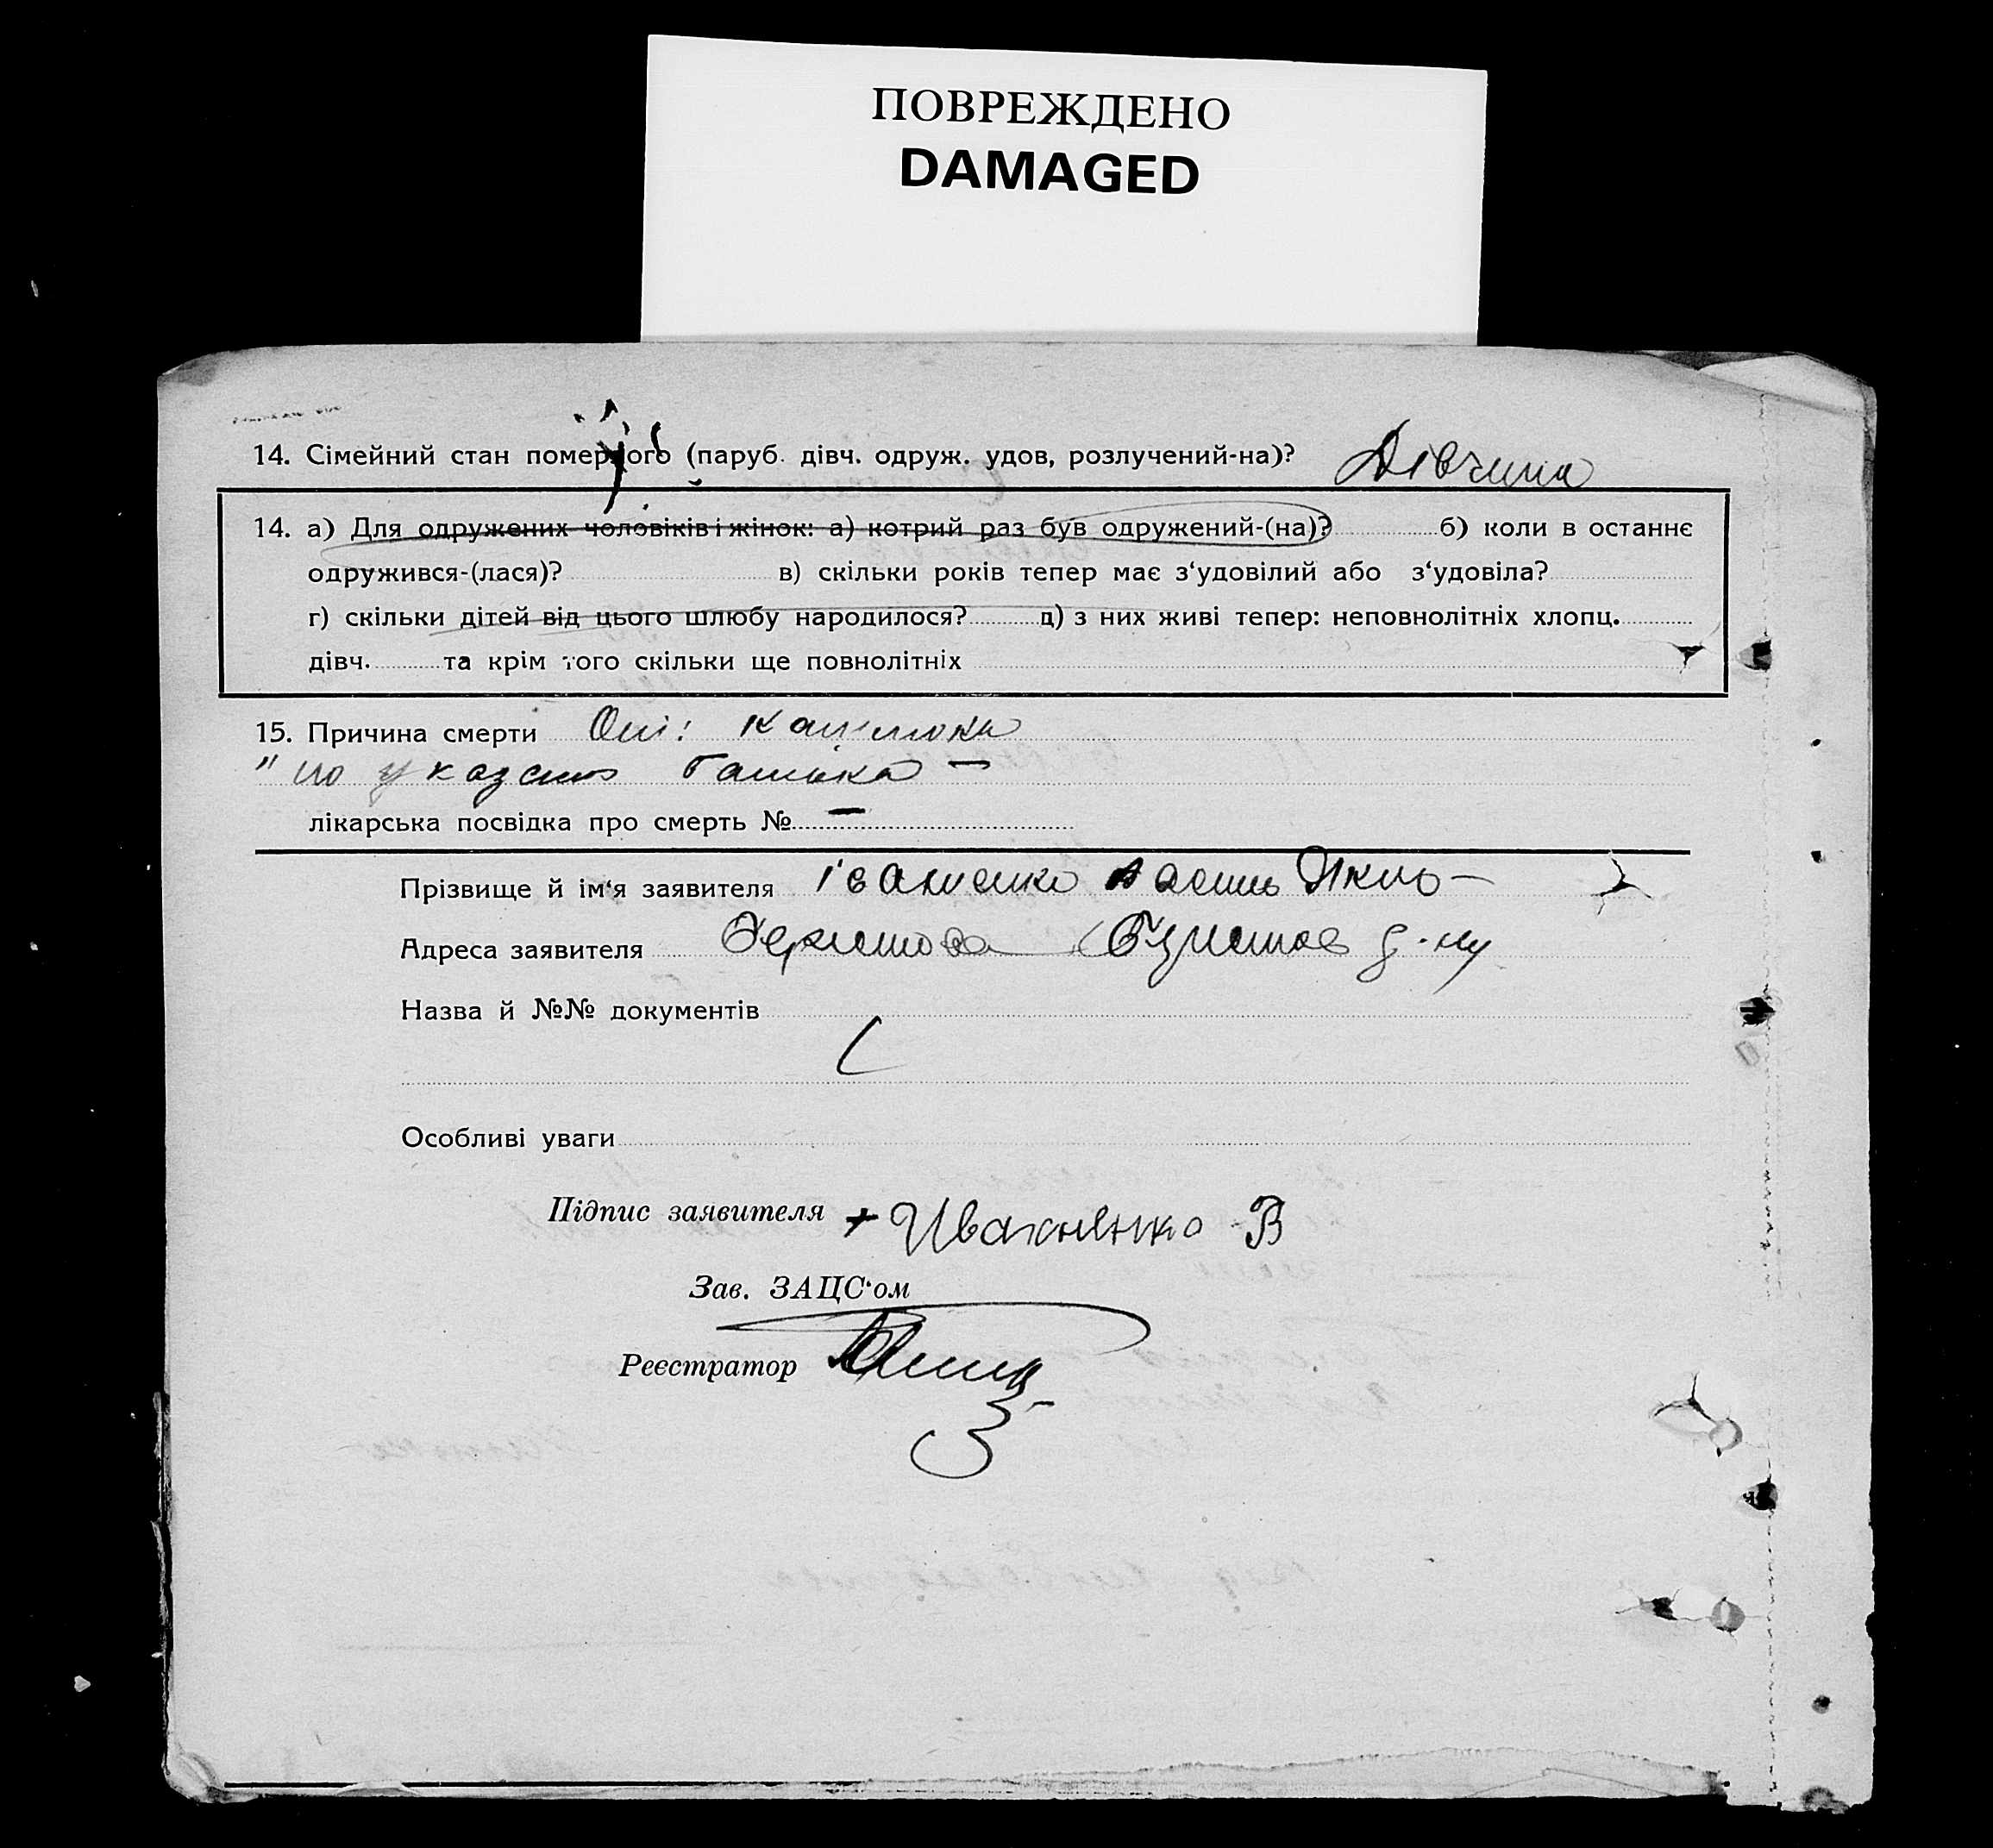 ПОВРЕЖДЕНО
DAMAGED
14. Сімейний стан померлого (паруб. дівч. одруж. удов, розлучений-на)? Дівчина
14. а) Для одружених чоловіків і жінок: а) котрий раз був одружений-(на)? б) коли в останнє
одружився-(лася)? в) скільки років тепер має з‘удовілий або з‘удовіла?
г) скільки дітей від цього шлюбу народилося? д) з них живі тепер: неповнолітніх хлопц.
дівч. та крім того скільки ще повнолітніх
15. Причина смерти Від
лікарська посвідка про смерть № —
Прізвище й ім‘я заявителя
Адреса заявителя
Назва й №№ документів
Особливі уваги
Підпис заявителя + Иваненко В
Зав. ЗАЦС‘ом
Реєстратор